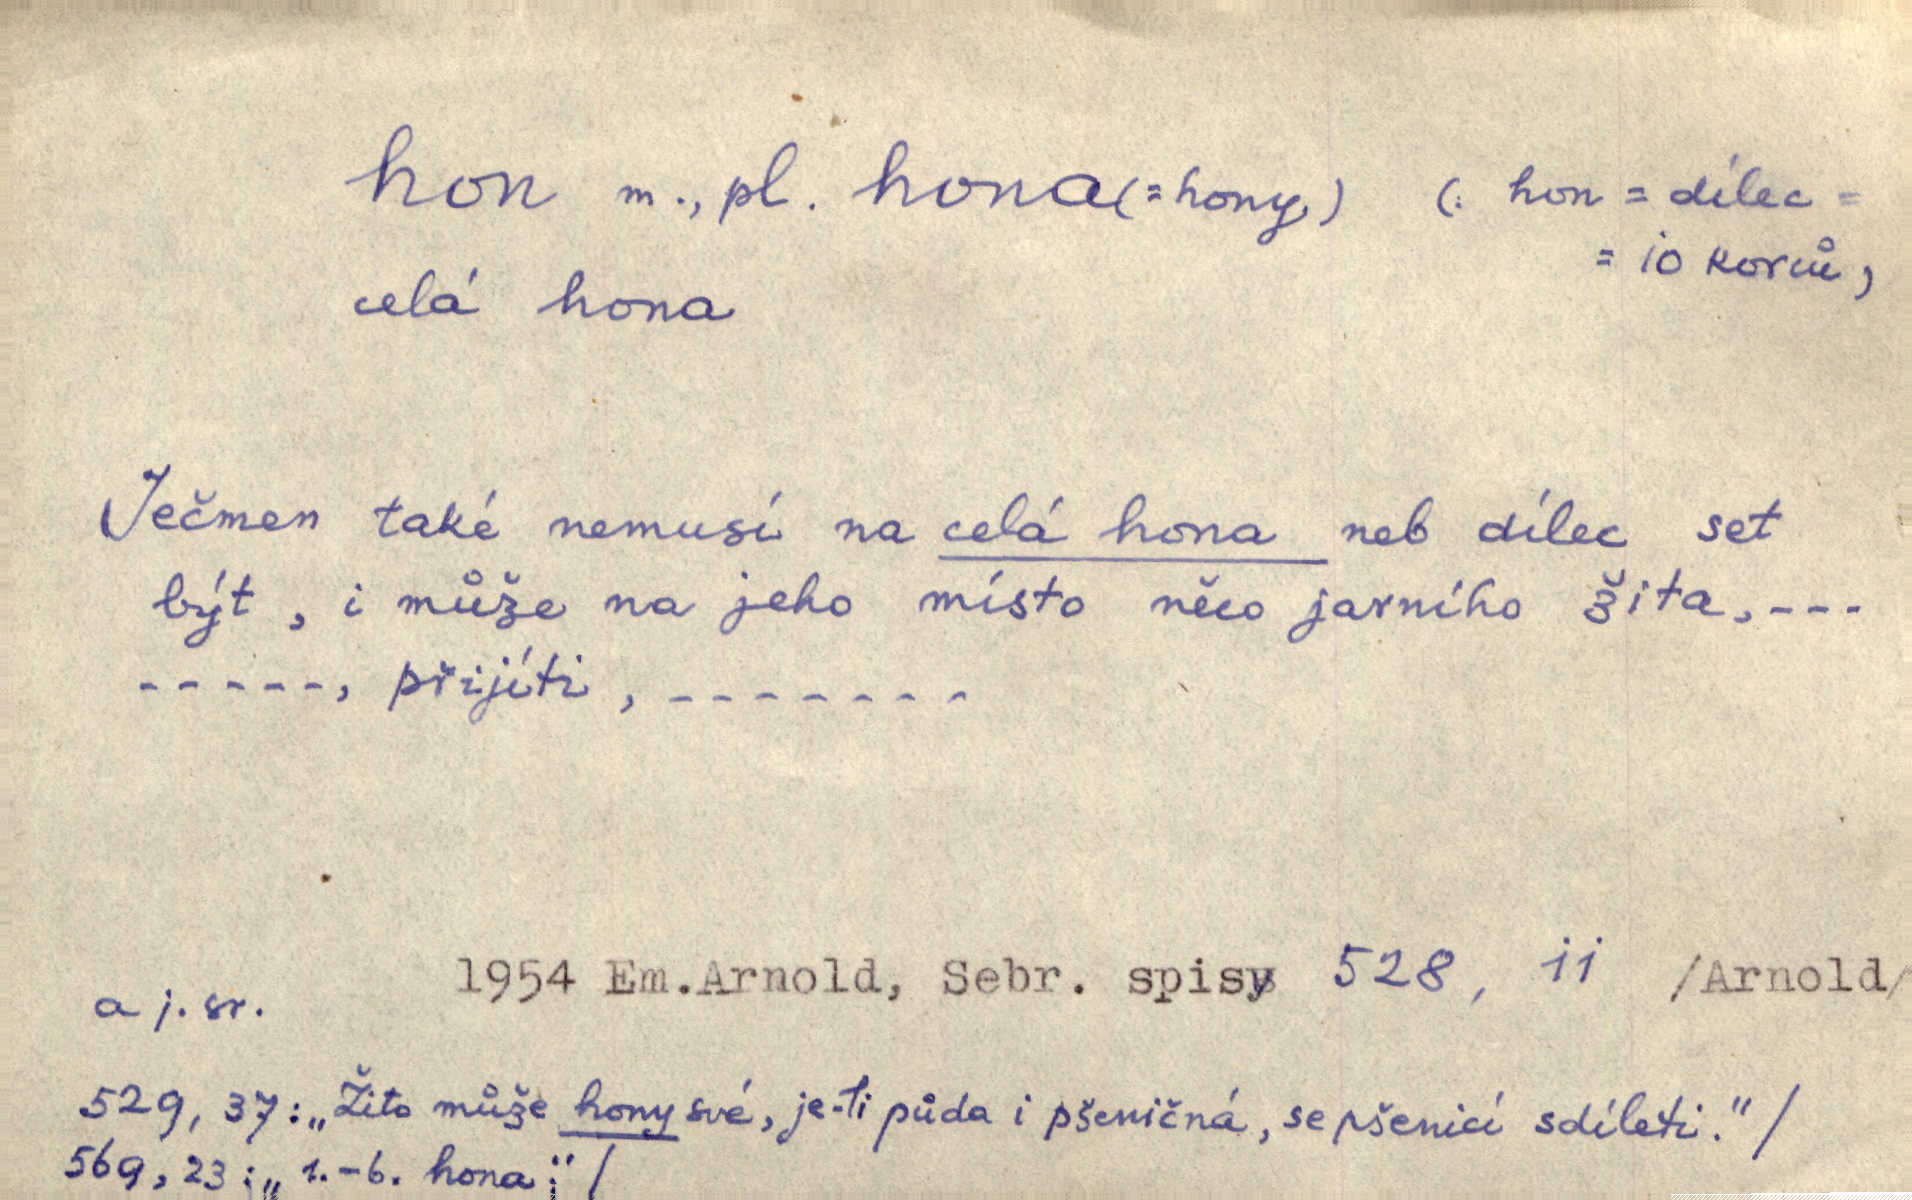 hon m., pl. hona (= hony) (: hon = dílec =
= 10 korců,
celá hona
Ječmen také nemusí na celá hona neb dílec set
být, i může na jeho místo něco jarního žita, ---
-----, přijíti, -------
1954 Em.Arnold, Sebr. spisy 528, 11 /Arnold/
a j. sr.
529, 37: „Žito může hony své, je-ti půda i pšeničná, se pšenicí sdíleti." /
569, 23: „1.-6. hona;" /